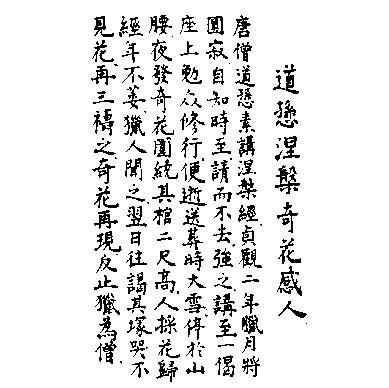 道愻涅槃奇花感人
唐僧道愻素講涅槃經貞觀二年臘月將
圓寂自知時至請而不去強之講至一偈
座上勉众修行便逝送葬時大雪停於山
腰夜發奇花圍繞其棺二尺高人採花歸
經年不萎獵人聞之翌日往謁其塚哭不
見花再三禱之奇花再現反止獵為僧